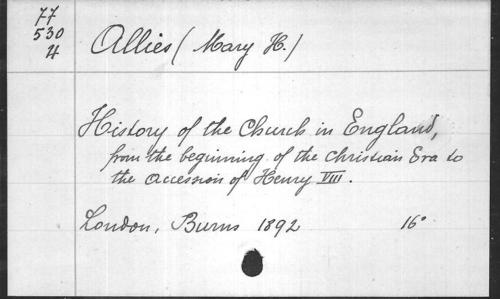 77
530
4
Allies (Mary H.)
History of the Church in England,
from the beginning of the Christian Era to
the accession of Henry VIII.
London, Burns 1892 16°